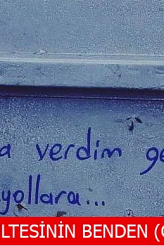 a verdim ge
yollara...
LTESİNİN BENDEN (